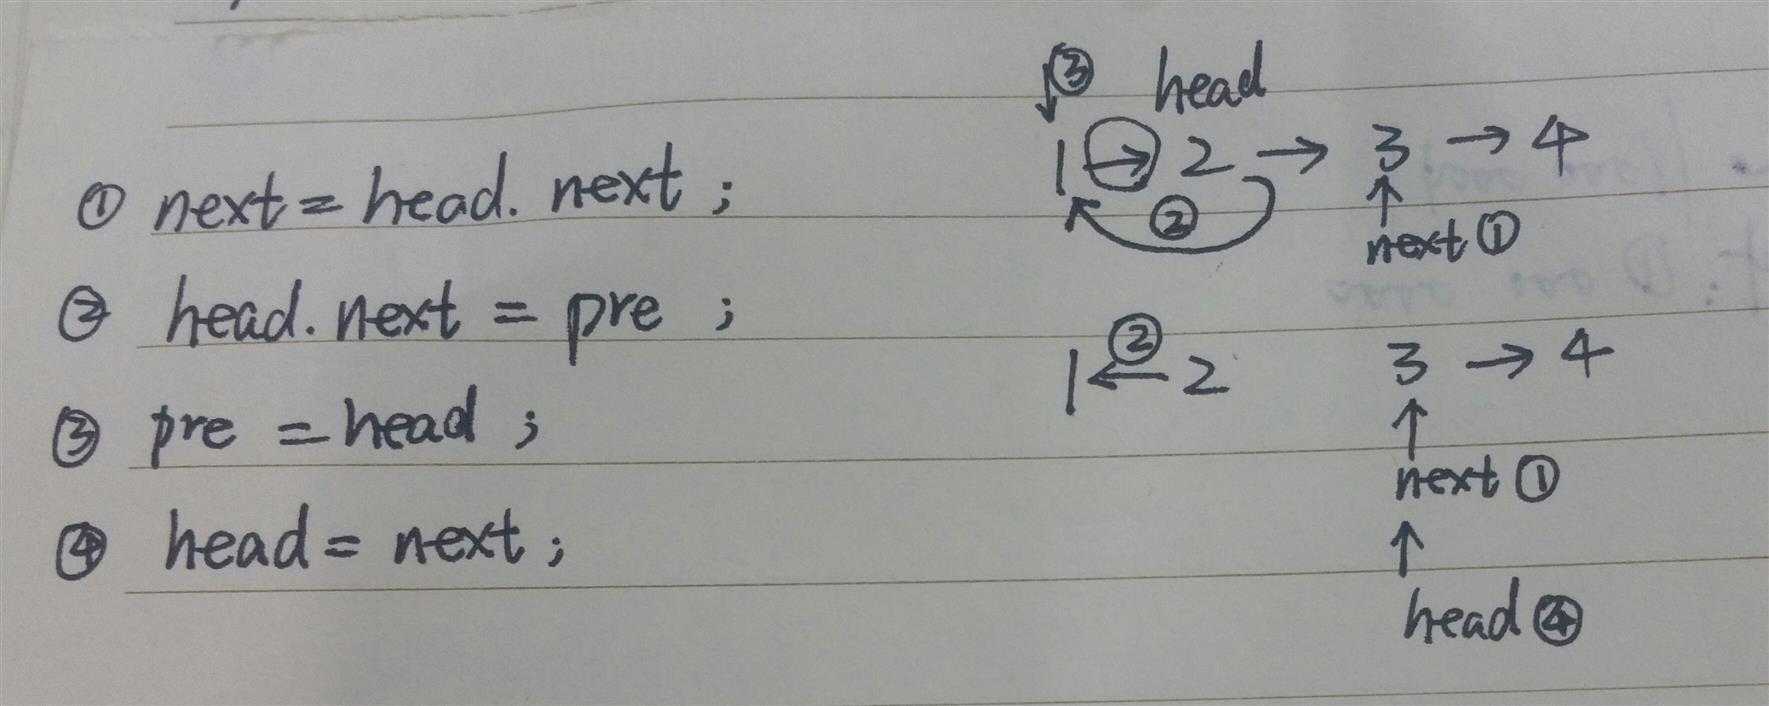 ① next = head. next ;
② head. next = pre ;
③ pre = head ;
④ head = next ;
③ head
1 → 2 → 3 → 4
②
next ①
②
1 ← 2 3 → 4
next ①
head ④